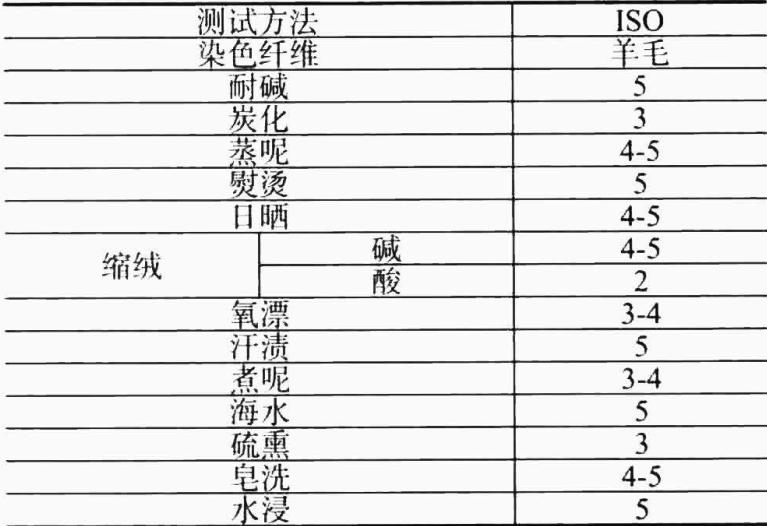 测试方法 ISO
染色纤维 羊毛
耐碱 5
炭化 3
蒸呢 4-5
熨烫 5
日晒 4-5
缩绒 碱 4-5
酸 2
氧漂 3-4
汗渍 5
煮呢 3-4
海水 5
硫熏 3
皂洗 4-5
水浸 5